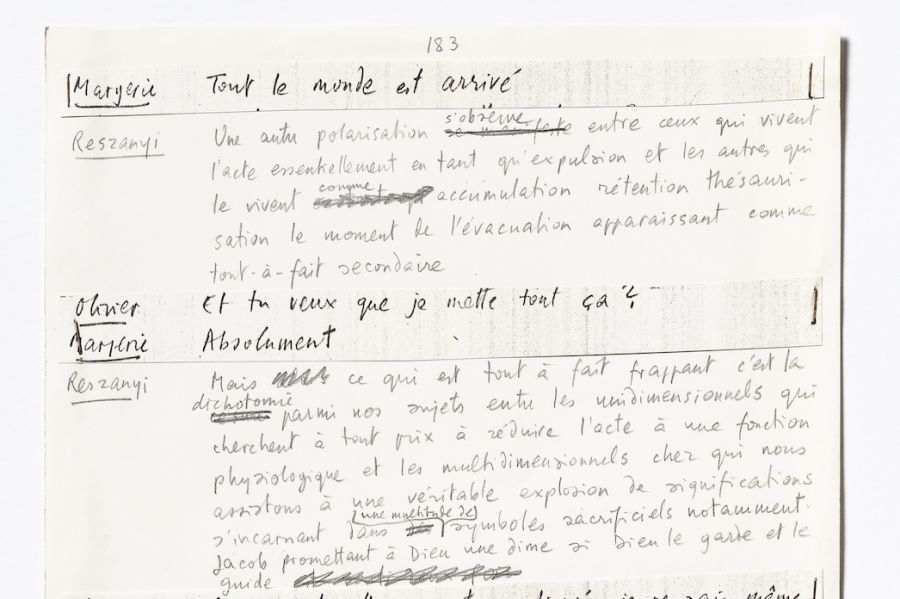 183
Margerie Tout le monde est arrivé
Reszanyi Une autre polarisation s'observe entre ceux qui vivent
l'acte essentiellement en tant qu'expulsion et les autres qui
le vivent comme accumulation rétention thésauri-
sation le moment de l'évacuation apparaissant comme
tout-à-fait secondaire
Olivier Et tu veux que je mette tout ça ?
Margerie Absolument
Reszanyi Mais ce qui est tout à fait frappant c'est la
dichotomie parmi nos sujets entre les unidimensionnels qui
cherchent à tout prix à réduire l'acte à une fonction
physiologique et les multidimensionnels chez qui nous
assistons à une véritable explosion de significations
s'incarnant dans une multitude de symboles sacrificiels notamment.
Jacob promettant à Dieu une dîme si Dieu le garde et le
guide